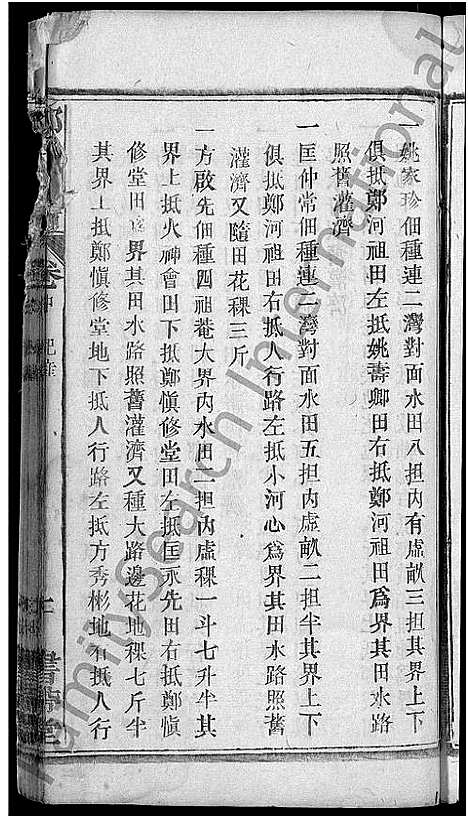 一姚家珍佃種連二灣對面水田八担內有虛畝三担其界上下
俱抵鄭河祖田左抵姚壽卿田右抵鄭河祖田為界其田水路
照舊灌濟
一匡仲常佃種連二灣對面水田五担內虛畝二担半其界上下
俱抵鄭河祖田右抵人行路左抵小河心為界其田水路照舊
灌濟又隨田花稞三斤
一方啟先佃種四祖菴大界內水田二担內虛稞一斗七升半其
界上抵火神會田下抵鄭愼修堂田左抵匡永先田右抵鄭愼
修堂田為界其田水路照舊灌濟又種大路邊花地稞七斤半
其界上抵鄭愼修堂地下抵人行路左抵方秀彬地右抵人行
卷中
祀產
書帶堂
FamilySearch International